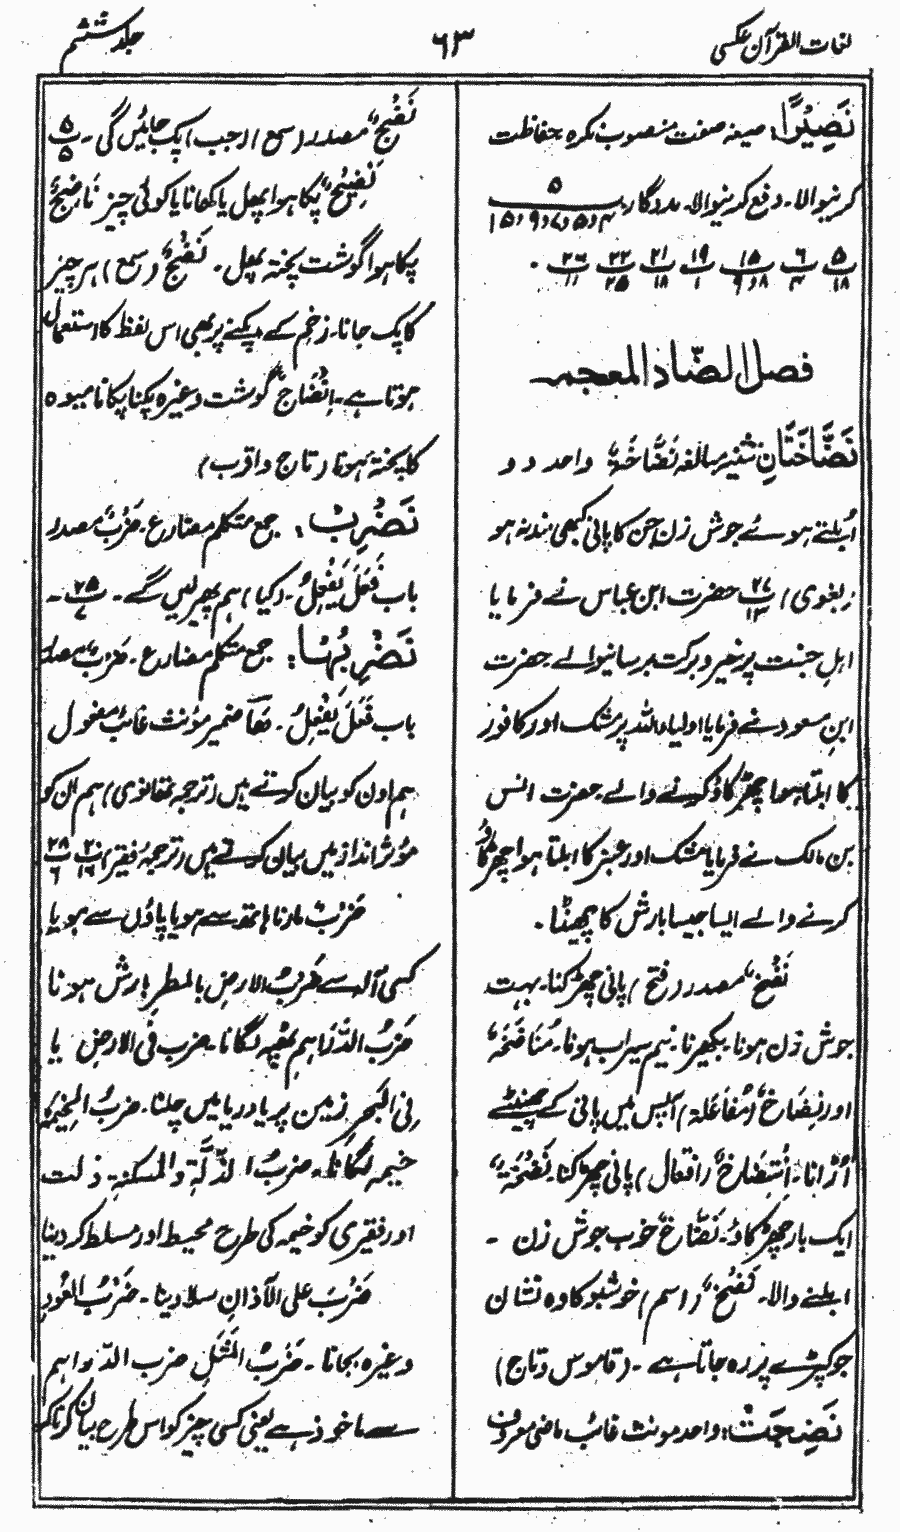 لغات القرآن عکسی
۶۳
جلد ششم
نَصِیْرًا: صیغہ صفت منصوب نکرہ حفاظت
کرنیوالا۔ دفع کرنیوالا۔ مددگار ۵ ۴ و ۵ و ۷ و ۹ و ۱۵
۵ ۱۸ ۶ ۴ ۱۵ ۸ و ۹ ۱۹ ۱ ۲۱ ۱۸ ۲۲ ۲۵ ۲۶ ۱۱ ۔
فصل الضّاد المعجمہ
نَضَّاخَتَانِ تثنیہ مبالغہ نَضَّاخَۃٌ واحد دو
اُبلتے ہوئے جوش زن جن کا پانی کبھی بند نہ ہو
(بغوی) ۲۷ ۱۳ حضرت ابن عباس نے فرمایا
اہلِ جنت پر خیر و برکت برسانیوالے حضرت
ابن مسعود نے فرمایا اولیاءاللہ پر مشک اور کافور
کا ابلتا ہوا چھڑکاؤ کرنے والے حضرت انس
بن مالک نے فرمایا مشک اور عنبر کا ابلتا ہوا چھڑکاؤ
کرنے والے ایسا جیسا بارش کا چھینٹا۔
نَضْخٌ مصدر (فتح) پانی چھڑکنا۔ بہت
جوش زن ہونا۔ بکھیرنا۔ نیم سیراب ہونا۔ مُنَاضَخَۃٌ
اور نِضَاخٌ (مُفَاعَلۃ) آپس میں پانی کے چھینٹے
اُڑانا۔ اُنْتِضَاخٌ (افتعال) پانی چھڑکنا۔ نَضْخَۃٌ
ایک بار چھڑکاؤ۔ نَضَّاخٌ خوب جوش زن ۔
ابلنے والا۔ نَضْخٌ (اسم) خوشبو کا وہ نشان
جو کپڑے پر رہ جاتا ہے ۔ (قاموس و تاج)
نَضِجَتْ: واحد مونث غائب ماضی معروف
نَضْجٌ مصدر (سمع) (جب) پک جائیں گی۔ ۵ ۵
نَضِیْجٌ پکا ہوا پھل یا کھانا یا کوئی چیز نَاضِجٌ
پکا ہوا گوشت پختہ پھل۔ نَضْجٌ (سمع) ہر چیز
کا پک جانا۔ زخم کے پکنے پر بھی اس لفظ کا استعمال
ہوتا ہے۔ اِنْضَاج گوشت وغیرہ پکنا پکانا میوہ
کا پختہ ہونا (تاج و اقرب)
نَضْرِبْ: جمع متکلم مضارع ضَرْبٌ مصدر
باب فَعَلَ یَفْعِلُ۔ (کیا) ہم پھیر لیں گے ۔ ۲۵ ۷ ۔
نَضْرِبُہَا: جمع متکلم مضارع۔ ضَرْبٌ مصدر
باب فَعَلَ یَفْعِلُ۔ ھَا ضمیر مؤنث غائب مفعول
ہم اون کو بیان کرتے ہیں (ترجمہ تھانوی) ہم ان کو
مؤثر انداز میں بیان کرتے ہیں (ترجمہ فقیر) ۲۰ ۱۶ ۲۸ ۶
ضَرْبٌ مارنا ہاتھ سے ہو یا پاؤں سے ہو یا
کسی آلہ سے ضَرْبُ الارضِ بالمطرِ بارش ہونا
ضَرْبُ الدَّرَاہِمِ ٹھپّہ لگانا۔ ضرب فی الارضِ یا
فی البحر زمین پر یا دریا میں چلنا۔ ضربُ الخِیْمَۃِ
خیمہ لگانا۔ ضربُ الذِّلَّۃِ والمسکنۃِ ذلت
اور فقیری کو خیمہ کی طرح محیط اور مسلط کر دینا
ضَرْبٌ علی الآذانِ سلا دینا۔ ضَرْبُ العُودِ
وغیرہ بجانا ۔ ضَرْبُ المَثَلِ ضرب الدّراہم
سے ماخوذ ہے یعنی کسی چیز کو اس طرح بیان کرنا کہ